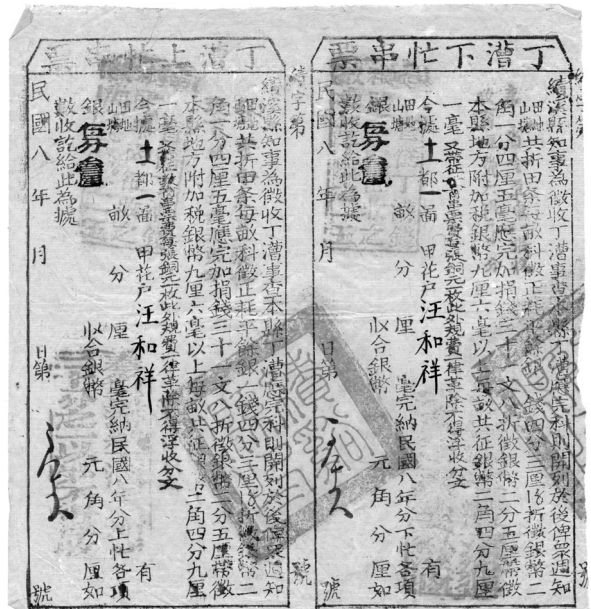 丁漕下忙串票
績字第 號
績溪縣知事為徵收丁漕事查本縣丁漕應完科則開列於後俾眾週知
田地山塘共折田条每畝科徵正耗平餘銀一錢四分三厘 折徵銀幣二
角一分四厘五毫應完加捐錢三十一文八折徵銀幣二分五厘幣徵
本縣地方附加稅銀幣九厘六毫以上每畝共征銀幣二角四分九厘
一毫 串票費每張銅元一枚此外規費一律革除不得浮收分文
今據土都一啚 甲花戶汪和祥 有
田地山塘 畝 分 厘 毫完納民國八年分下忙各項
銀 以合銀幣 元角分厘如
數收訖給此為據
民國八年 月 日第 號
丁漕上忙串票
績字第 號
績溪縣知事為徵收丁漕事查本縣丁漕應完科則開列於後俾眾週知
田地山塘共折田条每畝科徵正耗平餘銀一錢四分三厘 折徵銀幣二
角一分四厘五毫應完加捐錢三十一文八折徵銀幣二分五厘幣徵
本縣地方附加稅銀幣九厘六毫以上每畝共征銀幣二角四分九厘
一毫 串票費每張銅元一枚此外規費一律革除不得浮收分文
今據土都一啚 甲花戶汪和祥 有
田地山塘 畝 分 厘 毫完納民國八年分上忙各項
銀 以合銀幣 元角分厘如
數收訖給此為據
民國八年 月 日第 號